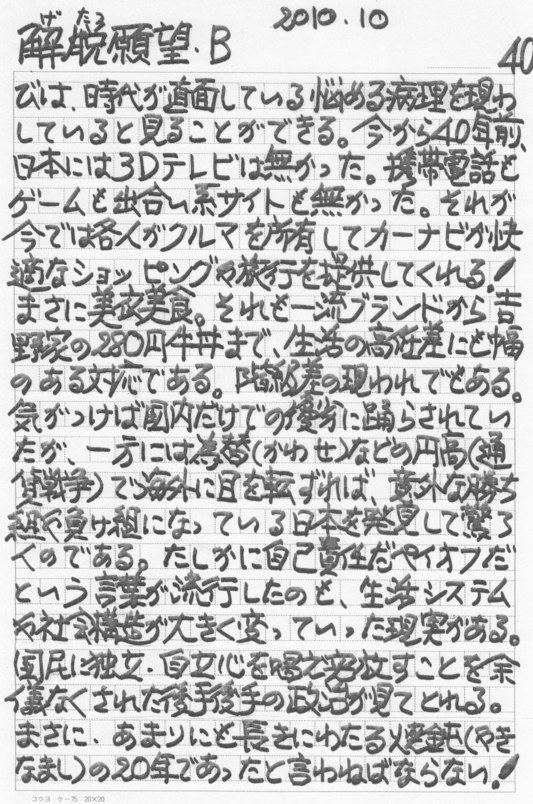 げだつ 2010.10
解脱願望.B
40
びは、時代が直面している悩める病理を現わ
していると見ることができる。今から40年前、
日本には3Dテレビは無かった。携帯電話と
ゲームも出合い系サイトも無かった。それが
今では各人がクルマを所有してカーナビが快
適なショッピングや旅行を提供してくれる！
まさに美衣美食。それも一流ブランドから吉
野家の280円牛丼まで、生活の高低差にも幅
のある対応である。階級差の現われでもある。
気がつけば国内だけでの優劣に踊らされてい
たが、一方には為替(かわせ)などの円高(通
貨戦争)で海外に目を転ずれば、意外な勝ち
組や負け組になっている日本を発見して驚ろ
くのである。たしかに自己責任だペイオフだ
という言葉が流行したのも、生活システム
や社会構造が大きく変っていった現実がある。
国民に独立・自立心を唱えて突放すことを余
儀なくされた後手後手の政治が見てとれる。
まさに、あまりにも長きにわたる焼鈍(やき
なまし)の20年であったと言わねばならない！
コクヨ ケ-75 20×20